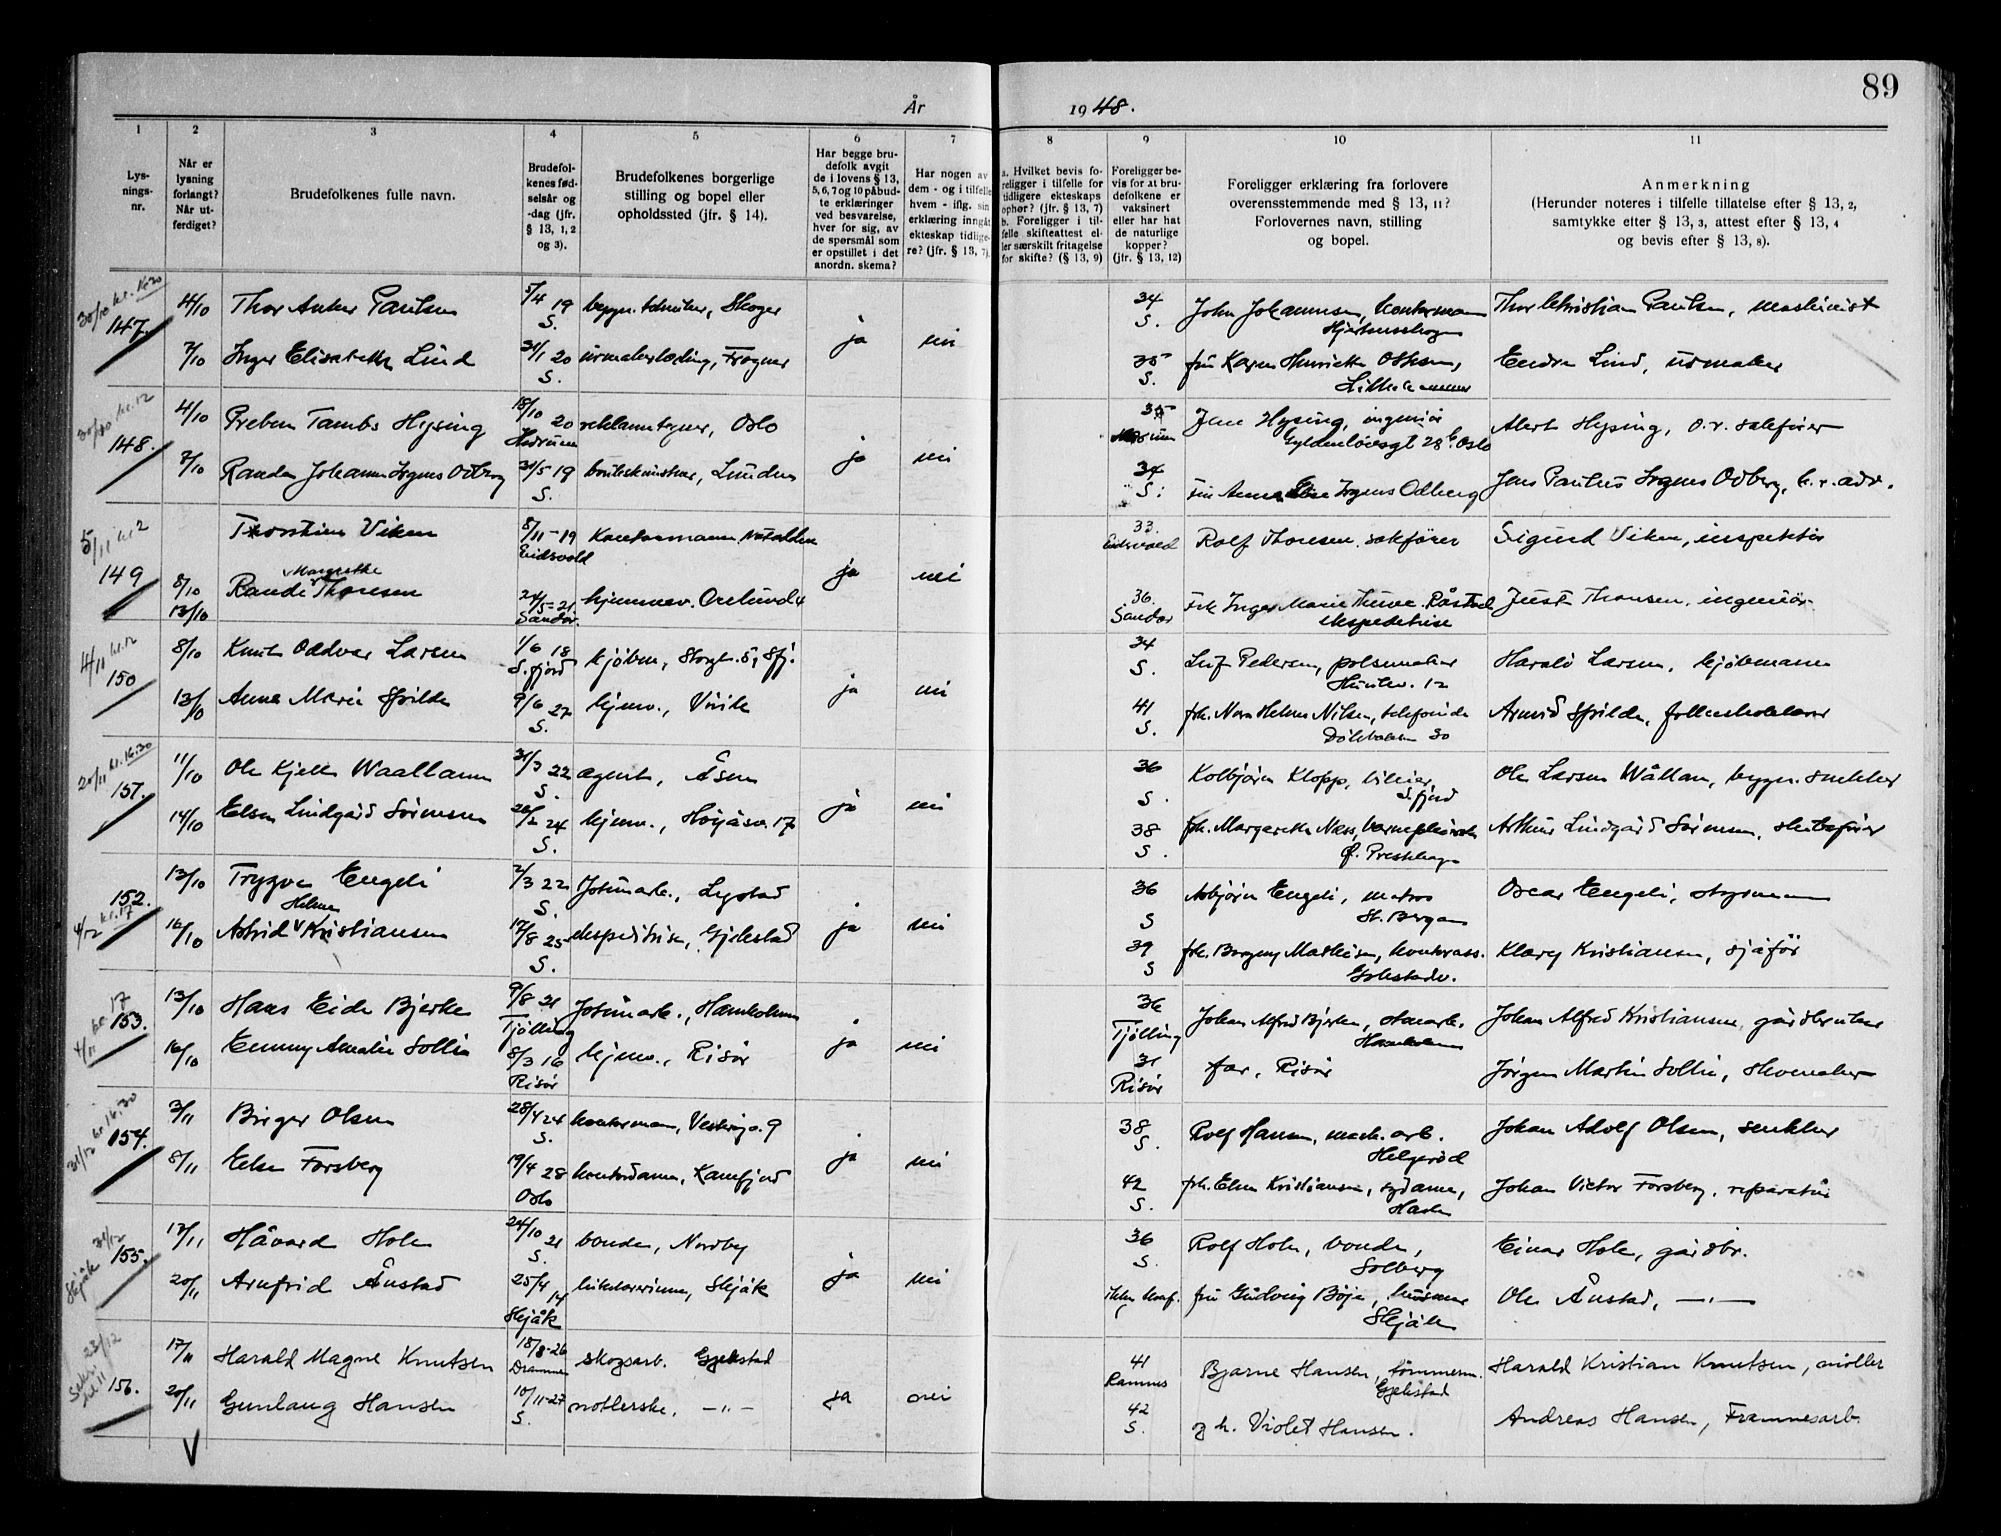 89
År 1948.
1 2 3 4 5 6 7 8 9 10 11
Lys-
nings-
nr.
Når er
lysning
forlangt?
Når ut-
ferdiget?
Brudefolkenes fulle navn.
Brudefol-
kenes fød-
selsår og
-dag (jfr.
§ 13, 1, 2
og 3).
Brudefolkenes borgerlige
stilling og bopel eller
opholdssted (jfr. § 14).
Har begge bru-
defolk avgit
de i lovens § 13,
5, 6, 7 og 10 påbud-
te erklæringer
ved besvarelse,
hver for sig, av
de spørsmål som
er opstillet i det
anordn. skema?
Har nogen av
dem - og i tilfelle
hvem - iflg. sin
erklæring inngått
ekteskap tidlige-
re? (jfr. § 13, 7).
a. Hvilket bevis fo-
religger i tilfelle for
tidligere ekteskaps
ophør? (jfr. § 13, 7)
b. Foreligger i til-
felle skifteattest el-
ler særskilt fritagelse
for skifte? (§ 13, 9)
Foreligger be-
vis for at bru-
defolkene er
vaksinert
eller har hat
de naturlige
kopper?
(jfr. § 13, 12)
Foreligger erklæring fra forlovere
overensstemmende med § 13, 11?
Forlovernes navn, stilling
og bopel.
Anmerkning
(Herunder noteres i tilfelle tillatelse efter § 13, 2,
samtykke efter § 13, 3, attest efter § 13, 4
og bevis efter § 13, 8).
30/10
147. 4/10 Thor Anker Paulsen 5/4 19 S. Skoger 34 S. John Johannessen, kontormann Thor Christian Paulsen, maskinist
7/10 Inger Elisabeth Lind 31/1 20 S. Frogner ja nei 35 S. fru Karen Henriette Endre Lind, urmaker
30/10 kl. 12
148. 4/10 Preben Tambs Hysing 18/10 20 Hedrum reklametegner, Oslo 35 Jens Hysing, ingeniør Gyldenløvesgt 28 Oslo Hysing, o.r. sakfører
7/10 Randen Johanne Irgens Odberg 31/5 19 S. Lunden ja nei 34 S. Irgens Odberg Jens Paulus Irgens Odberg, h.r. adv.
5/11 kl 2
149 Thorstein Viken 8/11-19 Eidsvold Kontormann, Notodden 33. Eidsvold Rolf Thoresen, sakfører Sigurd Viken, inspektør
8/10 13/10 Randi Margrethe Thoresen 24/5-21. Sandar. hjemmev. ja nei 36. Sandar Frk Inger Marie Råstad ekspeditrise Just Thoresen, ingeniør.
4/11 kl. 12
150 8/10 Knut Oddvar Larsen 1/6 18 S.fjord kjøbm., Storgt. 5, Sfj. 34 S. Leif Pedersen, pølsemaker 12 Harald Larsen, kjøbmann
13/10 Anna Marie Spilde 9/6 27 S. hjemv., Virik ja nei 41 S. frk. Nora Helene Nilsen, 30 Arnvid Spilde,
20/11 kl. 16.30
151. 11/10 Ole Kjell Waallann 31/3 22 S. agent, Åsen 36 S. Kolbjørn Klopp, S.fjord Ole Larsen Wållan, bygn. snekker
14/10 Elsa Lindgård Sørensen 24 S. hjemv., Høyåsv. 17 ja nei 38 S. frk. Margarethe Næss, Ø. Presthage Arthur Lindgård Sørensen,
4/12 kl. 17
152. 13/10 Trygve Engeli 2/3 22 S. Jotunarb., Lystad 36 S Asbjørn Engeli, matros St. Bergan Oscar Engeli, styrmann
16/10 Astrid Helene Kristiansen 17/8 25 S. ekspeditrise, Gjekstad ja nei 39 S frk. Borgny Mathisen, kontorass. Kristiansen, sjåfør
4/11 kl. 17
153. 13/10 Hans Eide Bjerke 9/8 21 Tjølling Jotunarb., Hamholmen 36 Tjølling Johan Alfred Bjerke, Johan Alfred Kristiansen, gårdbruker
16/10 Emmy Amalie Sollie 8/3 16 Risør hjemv., Risør ja nei 31 Risør far, Risør Jørgen Martin Sollie, skomaker
31/12 kl. 16.30
154. 3/11 Birger Olsen 28/4 24 S. kontormann, 9 38 S. Rolf Hansen, mek. arb. Helgerød Johan Adolf Olsen, snekker
8/11 Else Forsberg 19/4 28 Oslo kontordame, Kamfjord ja nei 42 S. frk. Else Kristiansen, sydame, Hasle Johan Victor Forsberg, reparatør
Skjåk 31/12
155. 17/11 Håvard Holm 24/10 21 S. bonde, Nordby 36 S. Rolf Holm, bonde, Solberg Einar Holm, gårdbr.
20/11 Arnfrid Ånstad 25/4 14 Skjåk Skjåk ja nei fru Gudveig Bøje, Skjåk Ole Ånstad, —"—
23/12
156. 17/11 Harald Magne Knutsen 18/8-26 Drammen skogsarb. Gjekstad 41 Ramnes Bjarne Hansen, tømmerm. Gjekstad Harald Kristian Knutsen, møller
20/11 Gunlaug Hansen 10/11-27 S. —"— ja nei 42 S. og h. Violet Hansen. Andreas Hansen, Framnesarb.
V